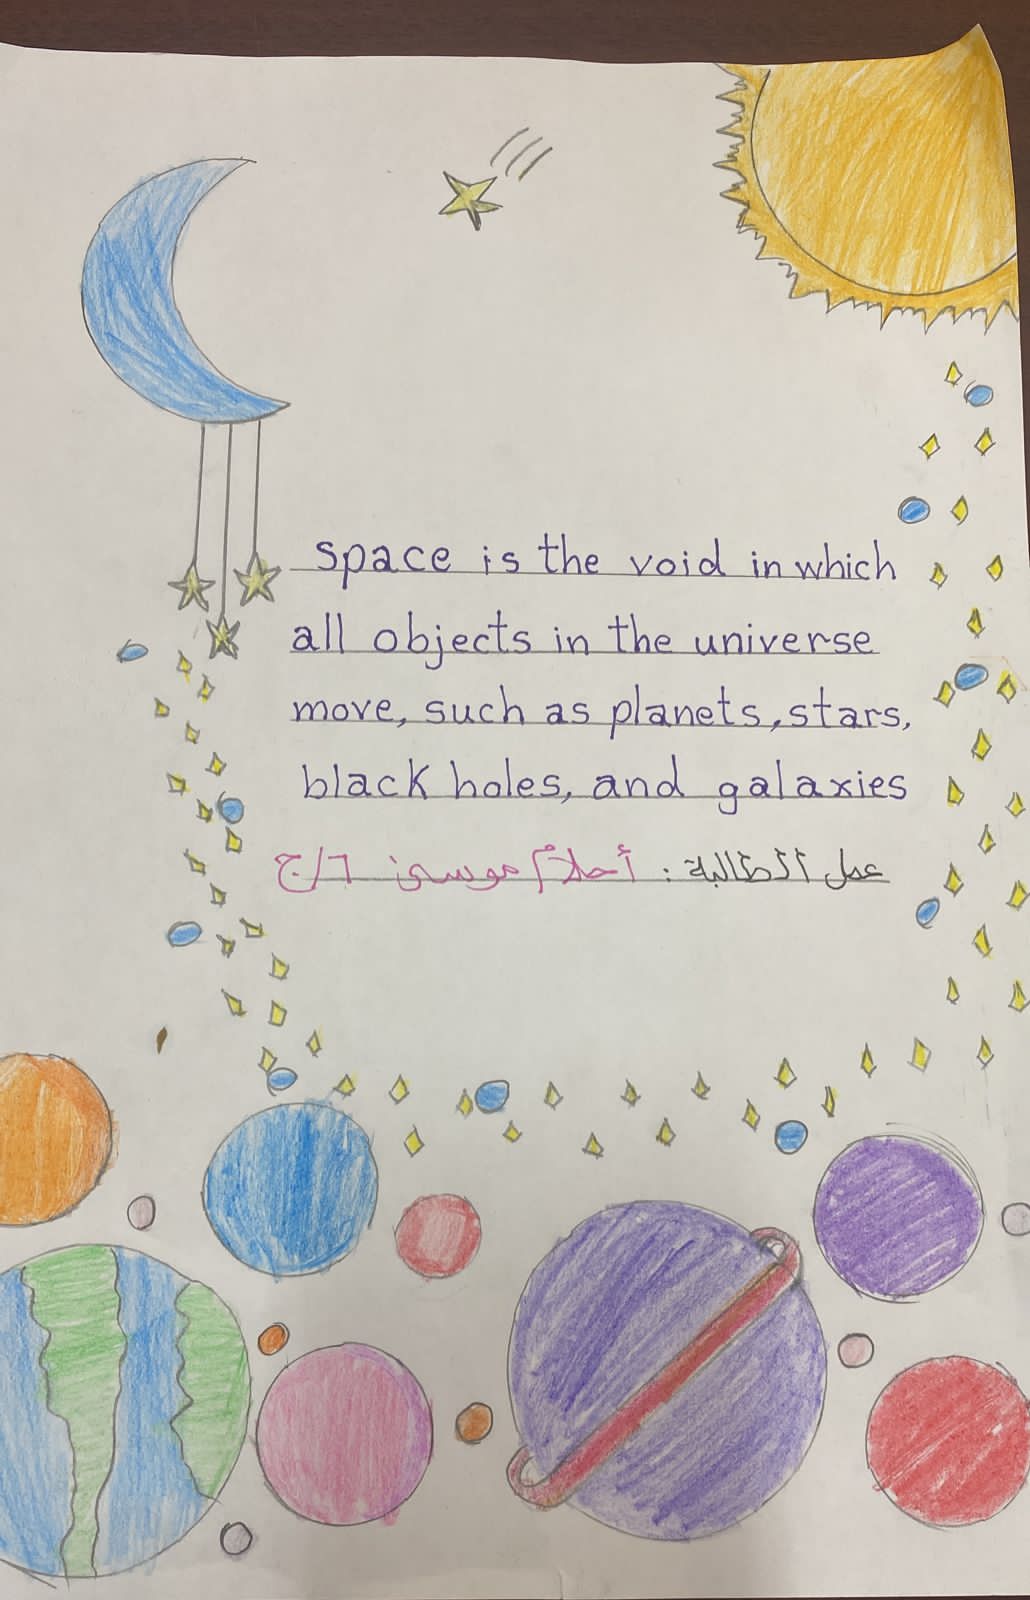 space is the void in which
all objects in the universe
move, such as planets, stars,
black holes, and galaxies
عمل الطالبة : أحلام موسى ٦/ج